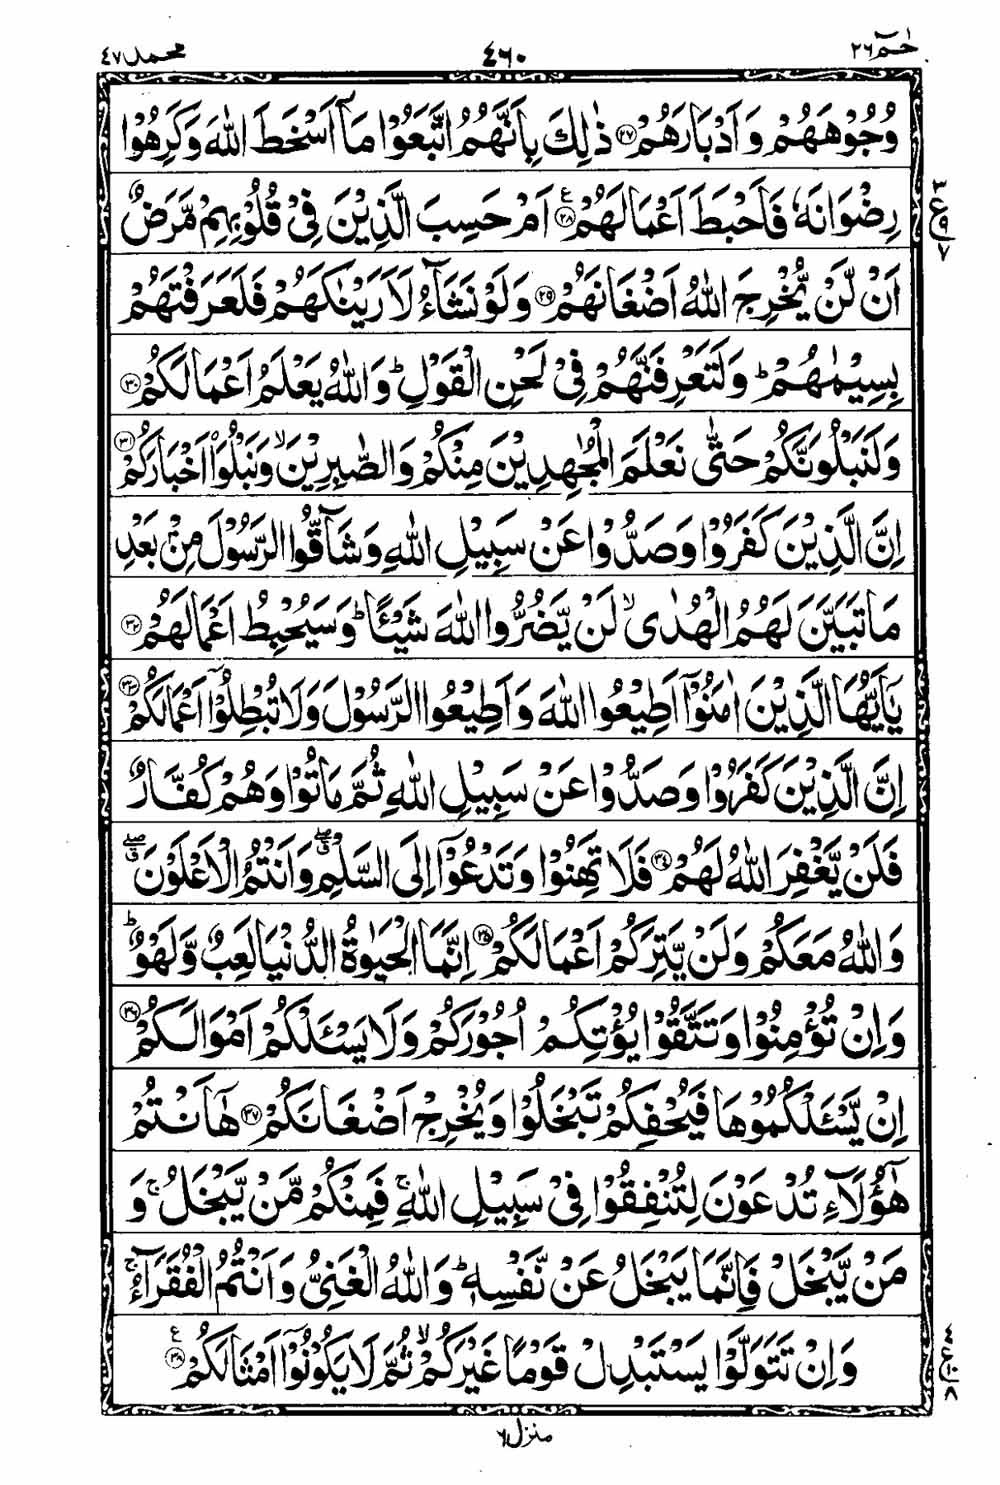 حٰمٓ ٢٦
٤٦٠
محمد ٤٧
وُجُوْهَهُمْ وَاَدْبَارَهُمْ ﴿٢٧﴾ ذٰلِكَ بِاَنَّهُمُ اتَّبَعُوْا مَاۤ اَسْخَطَ اللّٰهَ وَكَرِهُوْا
رِضْوَانَهٗ فَاَحْبَطَ اَعْمَالَهُمْ ﴿٢٨﴾ ع اَمْ حَسِبَ الَّذِيْنَ فِيْ قُلُوْبِهِمْ مَّرَضٌ
اَنْ لَّنْ يُّخْرِجَ اللّٰهُ اَضْغَانَهُمْ ﴿٢٩﴾ وَلَوْ نَشَآءُ لَاَرَيْنٰكَهُمْ فَلَعَرَفْتَهُمْ
بِسِيْمٰهُمْ ؕ وَلَتَعْرِفَنَّهُمْ فِيْ لَحْنِ الْقَوْلِ ؕ وَاللّٰهُ يَعْلَمُ اَعْمَالَكُمْ ﴿٣٠﴾
وَلَنَبْلُوَنَّكُمْ حَتّٰى نَعْلَمَ الْمُجٰهِدِيْنَ مِنْكُمْ وَالصّٰبِرِيْنَ ۙ وَنَبْلُوَا۟ اَخْبَارَكُمْ ﴿٣١﴾
اِنَّ الَّذِيْنَ كَفَرُوْا وَصَدُّوْا عَنْ سَبِيْلِ اللّٰهِ وَشَآقُّوا الرَّسُوْلَ مِنْۢ بَعْدِ
مَا تَبَيَّنَ لَهُمُ الْهُدٰى ۙ لَنْ يَّضُرُّوا اللّٰهَ شَيْـًٔا ؕ وَسَيُحْبِطُ اَعْمَالَهُمْ ﴿٣٢﴾
يٰۤاَيُّهَا الَّذِيْنَ اٰمَنُوْۤا اَطِيْعُوا اللّٰهَ وَاَطِيْعُوا الرَّسُوْلَ وَلَا تُبْطِلُوْۤا اَعْمَالَكُمْ ﴿٣٣﴾
اِنَّ الَّذِيْنَ كَفَرُوْا وَصَدُّوْا عَنْ سَبِيْلِ اللّٰهِ ثُمَّ مَاتُوْا وَهُمْ كُفَّارٌ
فَلَنْ يَّغْفِرَ اللّٰهُ لَهُمْ ﴿٣٤﴾ فَلَا تَهِنُوْا وَتَدْعُوْۤا اِلَى السَّلْمِ ۖق وَاَنْتُمُ الْاَعْلَوْنَ ۖق
وَاللّٰهُ مَعَكُمْ وَلَنْ يَّتِرَكُمْ اَعْمَالَكُمْ ﴿٣٥﴾ اِنَّمَا الْحَيٰوةُ الدُّنْيَا لَعِبٌ وَّلَهْوٌ ؕ
وَاِنْ تُؤْمِنُوْا وَتَتَّقُوْا يُؤْتِكُمْ اُجُوْرَكُمْ وَلَا يَسْـَٔلْكُمْ اَمْوَالَكُمْ ﴿٣٦﴾
اِنْ يَّسْـَٔلْكُمُوْهَا فَيُحْفِكُمْ تَبْخَلُوْا وَيُخْرِجْ اَضْغَانَكُمْ ﴿٣٧﴾ هٰۤاَنْتُمْ
هٰۤؤُلَآءِ تُدْعَوْنَ لِتُنْفِقُوْا فِيْ سَبِيْلِ اللّٰهِ ۚ فَمِنْكُمْ مَّنْ يَّبْخَلُ ۚ وَ
مَنْ يَّبْخَلْ فَاِنَّمَا يَبْخَلُ عَنْ نَّفْسِهٖ ؕ وَاللّٰهُ الْغَنِيُّ وَاَنْتُمُ الْفُقَرَآءُ ۚ
وَاِنْ تَتَوَلَّوْا يَسْتَبْدِلْ قَوْمًا غَيْرَكُمْ ۙ ثُمَّ لَا يَكُوْنُوْۤا اَمْثَالَكُمْ ﴿٣٨﴾ ع
منزل ٦